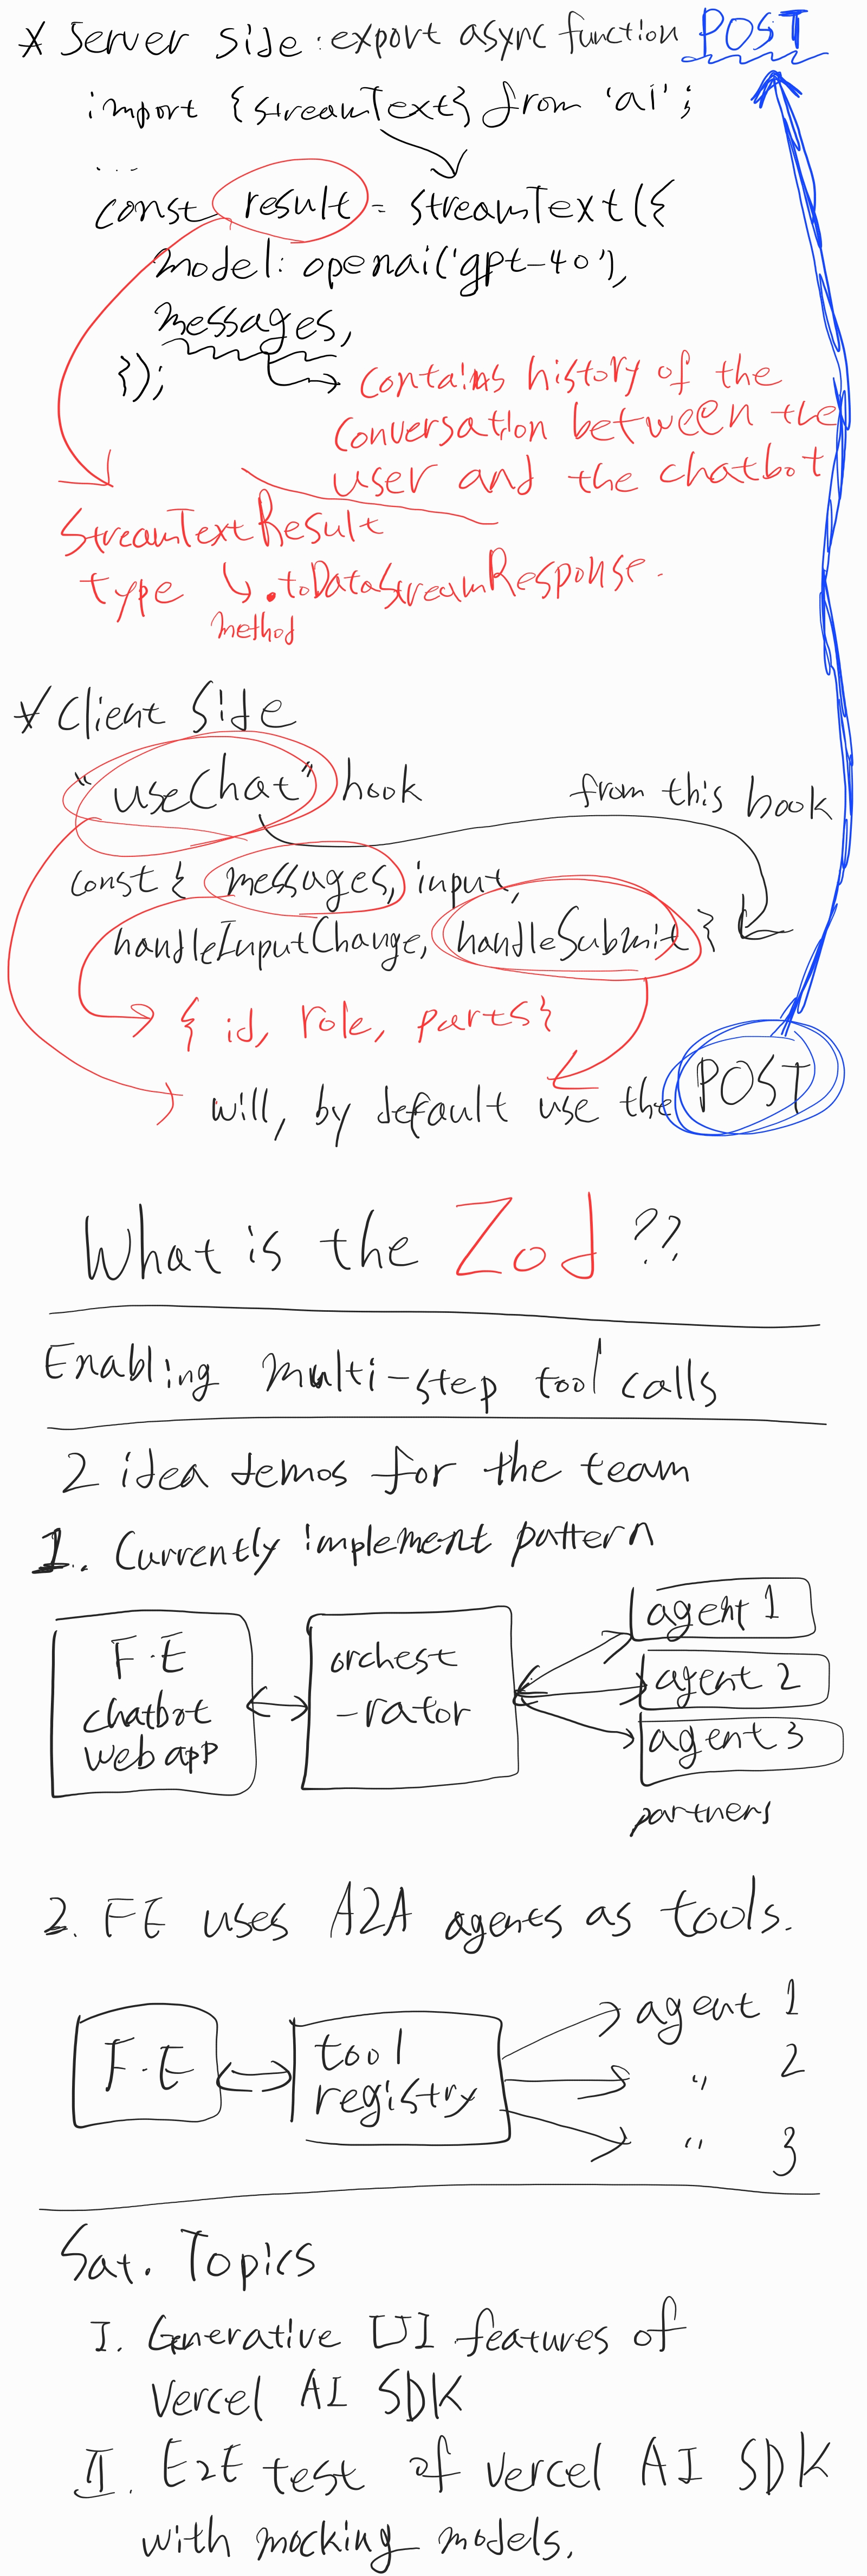 * Server side : export async function POST
import {streamText} from 'ai';
...
const result = streamText({
model: openai('gpt-4o'),
messages,
});
contains history of the
conversation between the
user and the chatbot
StreamTextResult
type .toDataStreamResponse.
method
* Client Side
"useChat" hook
from this hook
const { messages, input,
handleInputChange, handleSubmit }
{ id, role, parts}
will, by default use the POST
What is the Zod ??
Enabling multi-step tool calls
2 idea demos for the team
1. Currently implement pattern
F.E
chatbot
web app
orchest
-rator
agent 1
agent 2
agent 3
partners
2. FE uses A2A agents as tools.
F.E
tool
registry
agent 1
" 2
" 3
Sat. Topics
I. Generative UI features of
Vercel AI SDK
II. E2E test of Vercel AI SDK
with mocking models.